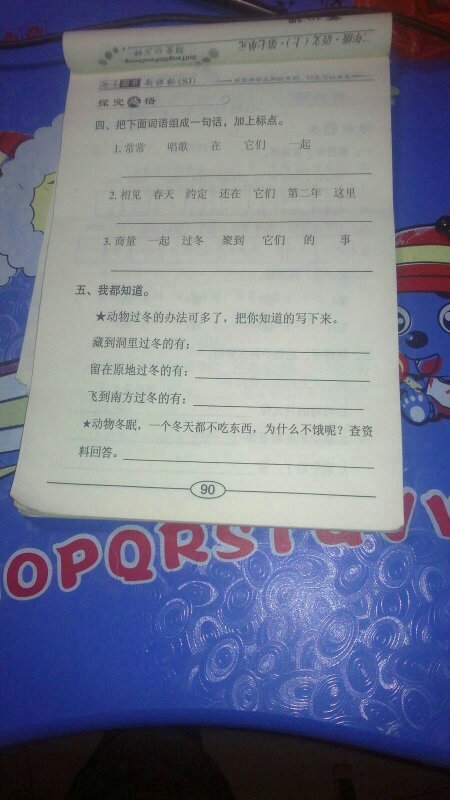 二年级·语文(上)·第七单元
随堂10分钟
SuiTangShiFenZhong
新课标(SJ)
探究感悟
四、把下面词语组成一句话，加上标点。
1. 常常 唱歌 在 它们 一起
2. 相见 春天 约定 还在 它们 第二年 这里
3. 商量 一起 过冬 聚到 它们 的 事
五、我都知道。
★动物过冬的办法可多了，把你知道的写下来。
藏到洞里过冬的有：
留在原地过冬的有：
飞到南方过冬的有：
★动物冬眠，一个冬天都不吃东西，为什么不饿呢？查资
料回答。
90
OPQRSTUV